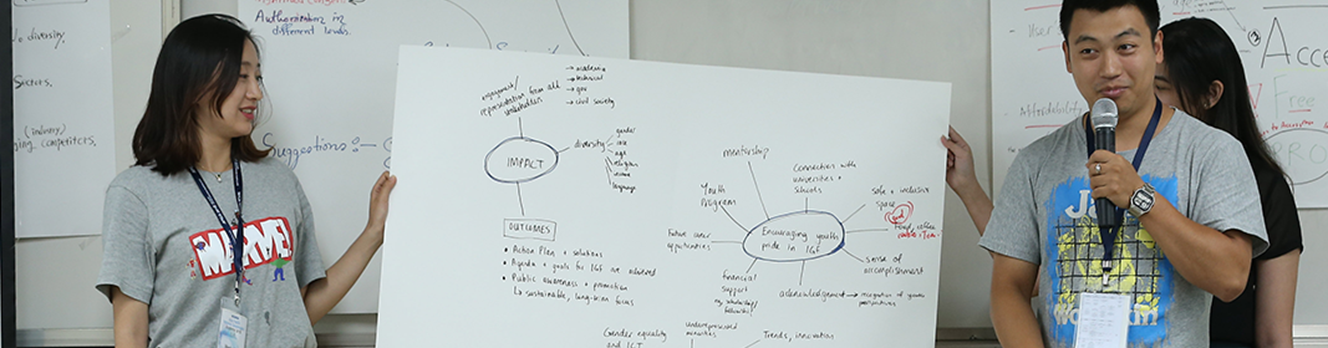 diversity,
Sectors,
(industry)
competitors,
Authorization in
different levels.
Suggestions:-
engagement/
representation from all
stakeholders
→ academia
→ technical
→ gov
→ civil society
IMPACT
diversity
gender
race
age
religion
income
language
OUTCOMES
• Action Plan + solutions
• Agenda + goals for IGF are achieved
• Public awareness + promotion
↳ sustainable, long-term focus
mentorship
Connection with
universities +
schools
Youth
Program
safe + inclusive
space
Food, coffee
Future career
opportunities
Encouraging youth
pride in IGF
sense of
accomplishment
financial
support
eg, scholarship/
fellowship
acknowledgement → recognition of youth
perspectives
Gender equality
and ICT
underrepresented
minorities
Trends, innovation
MARVEL
- User
- Affordability
③ Acce
Free
PRO